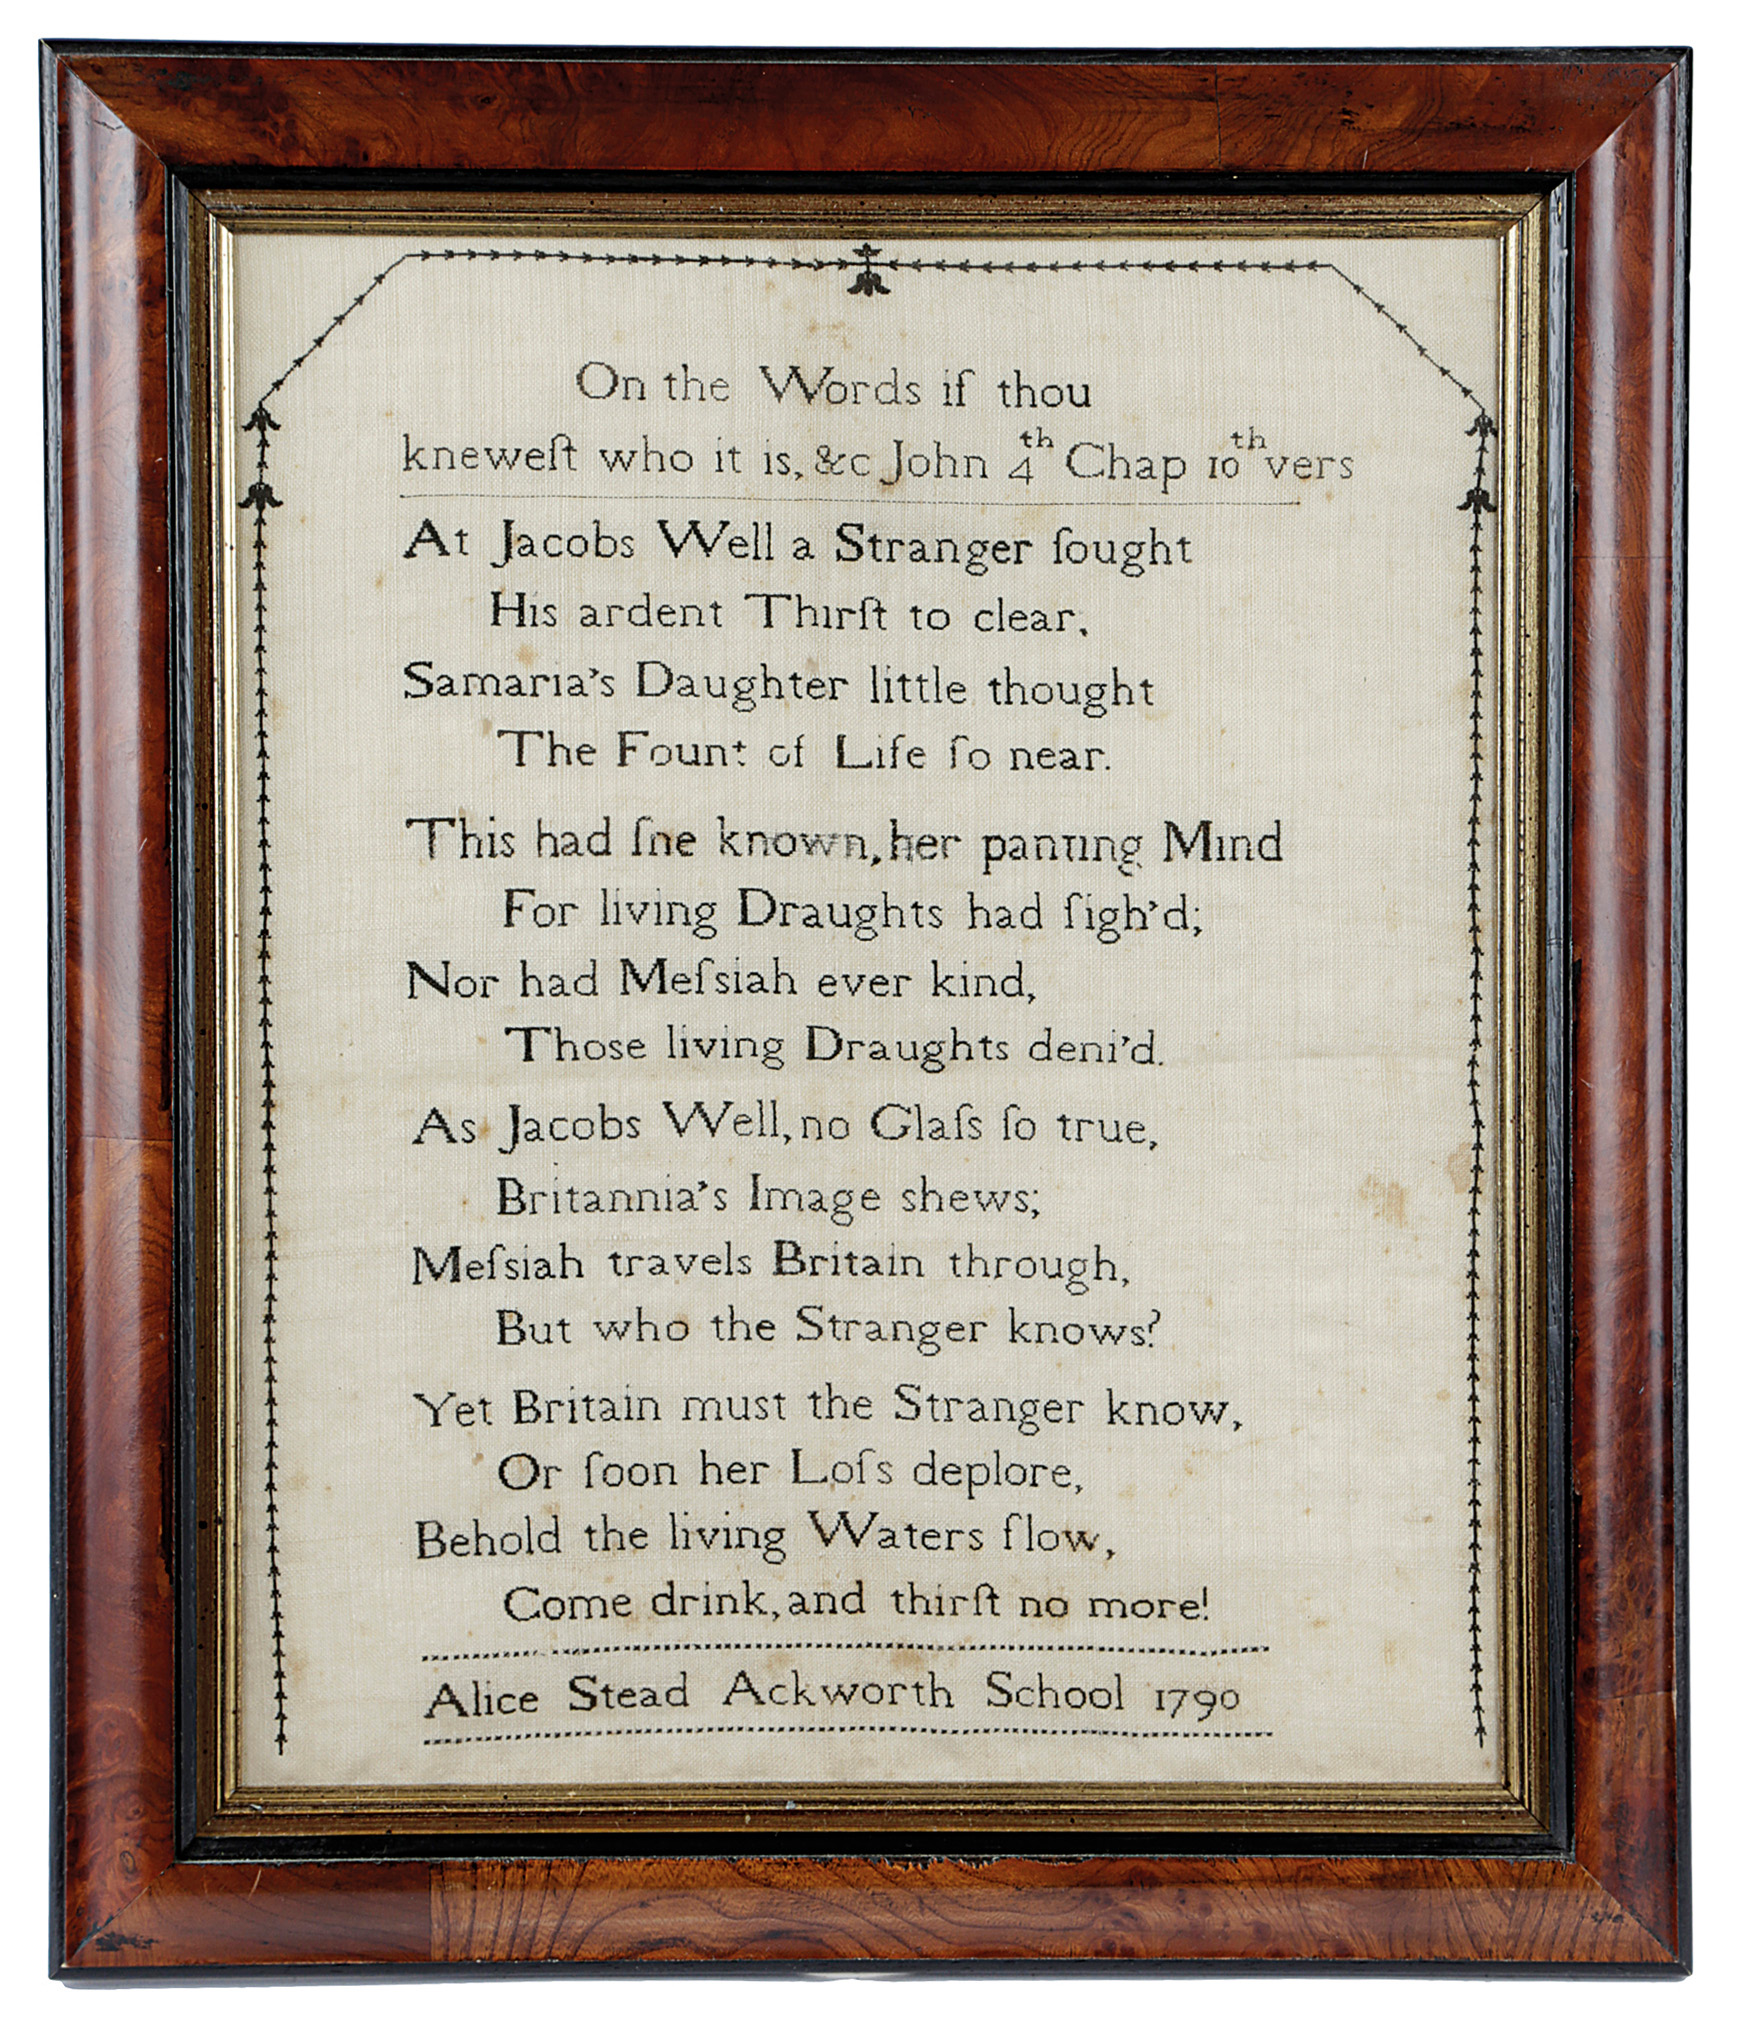 On the Words if thou
kneweſt who it is, &c John 4th Chap 10th vers
At Jacobs Well a Stranger ſought
His ardent Thirſt to clear,
Samaria's Daughter little thought
The Fount of Life ſo near.
This had ſhe known, her panting Mind
For living Draughts had ſigh'd;
Nor had Meſsiah ever kind,
Those living Draughts deni'd.
As Jacobs Well, no Glaſs ſo true,
Britannia's Image shews;
Meſsiah travels Britain through,
But who the Stranger knows?
Yet Britain must the Stranger know,
Or ſoon her Loſs deplore,
Behold the living Waters flow,
Come drink, and thirſt no more!
Alice Stead Ackworth School 1790